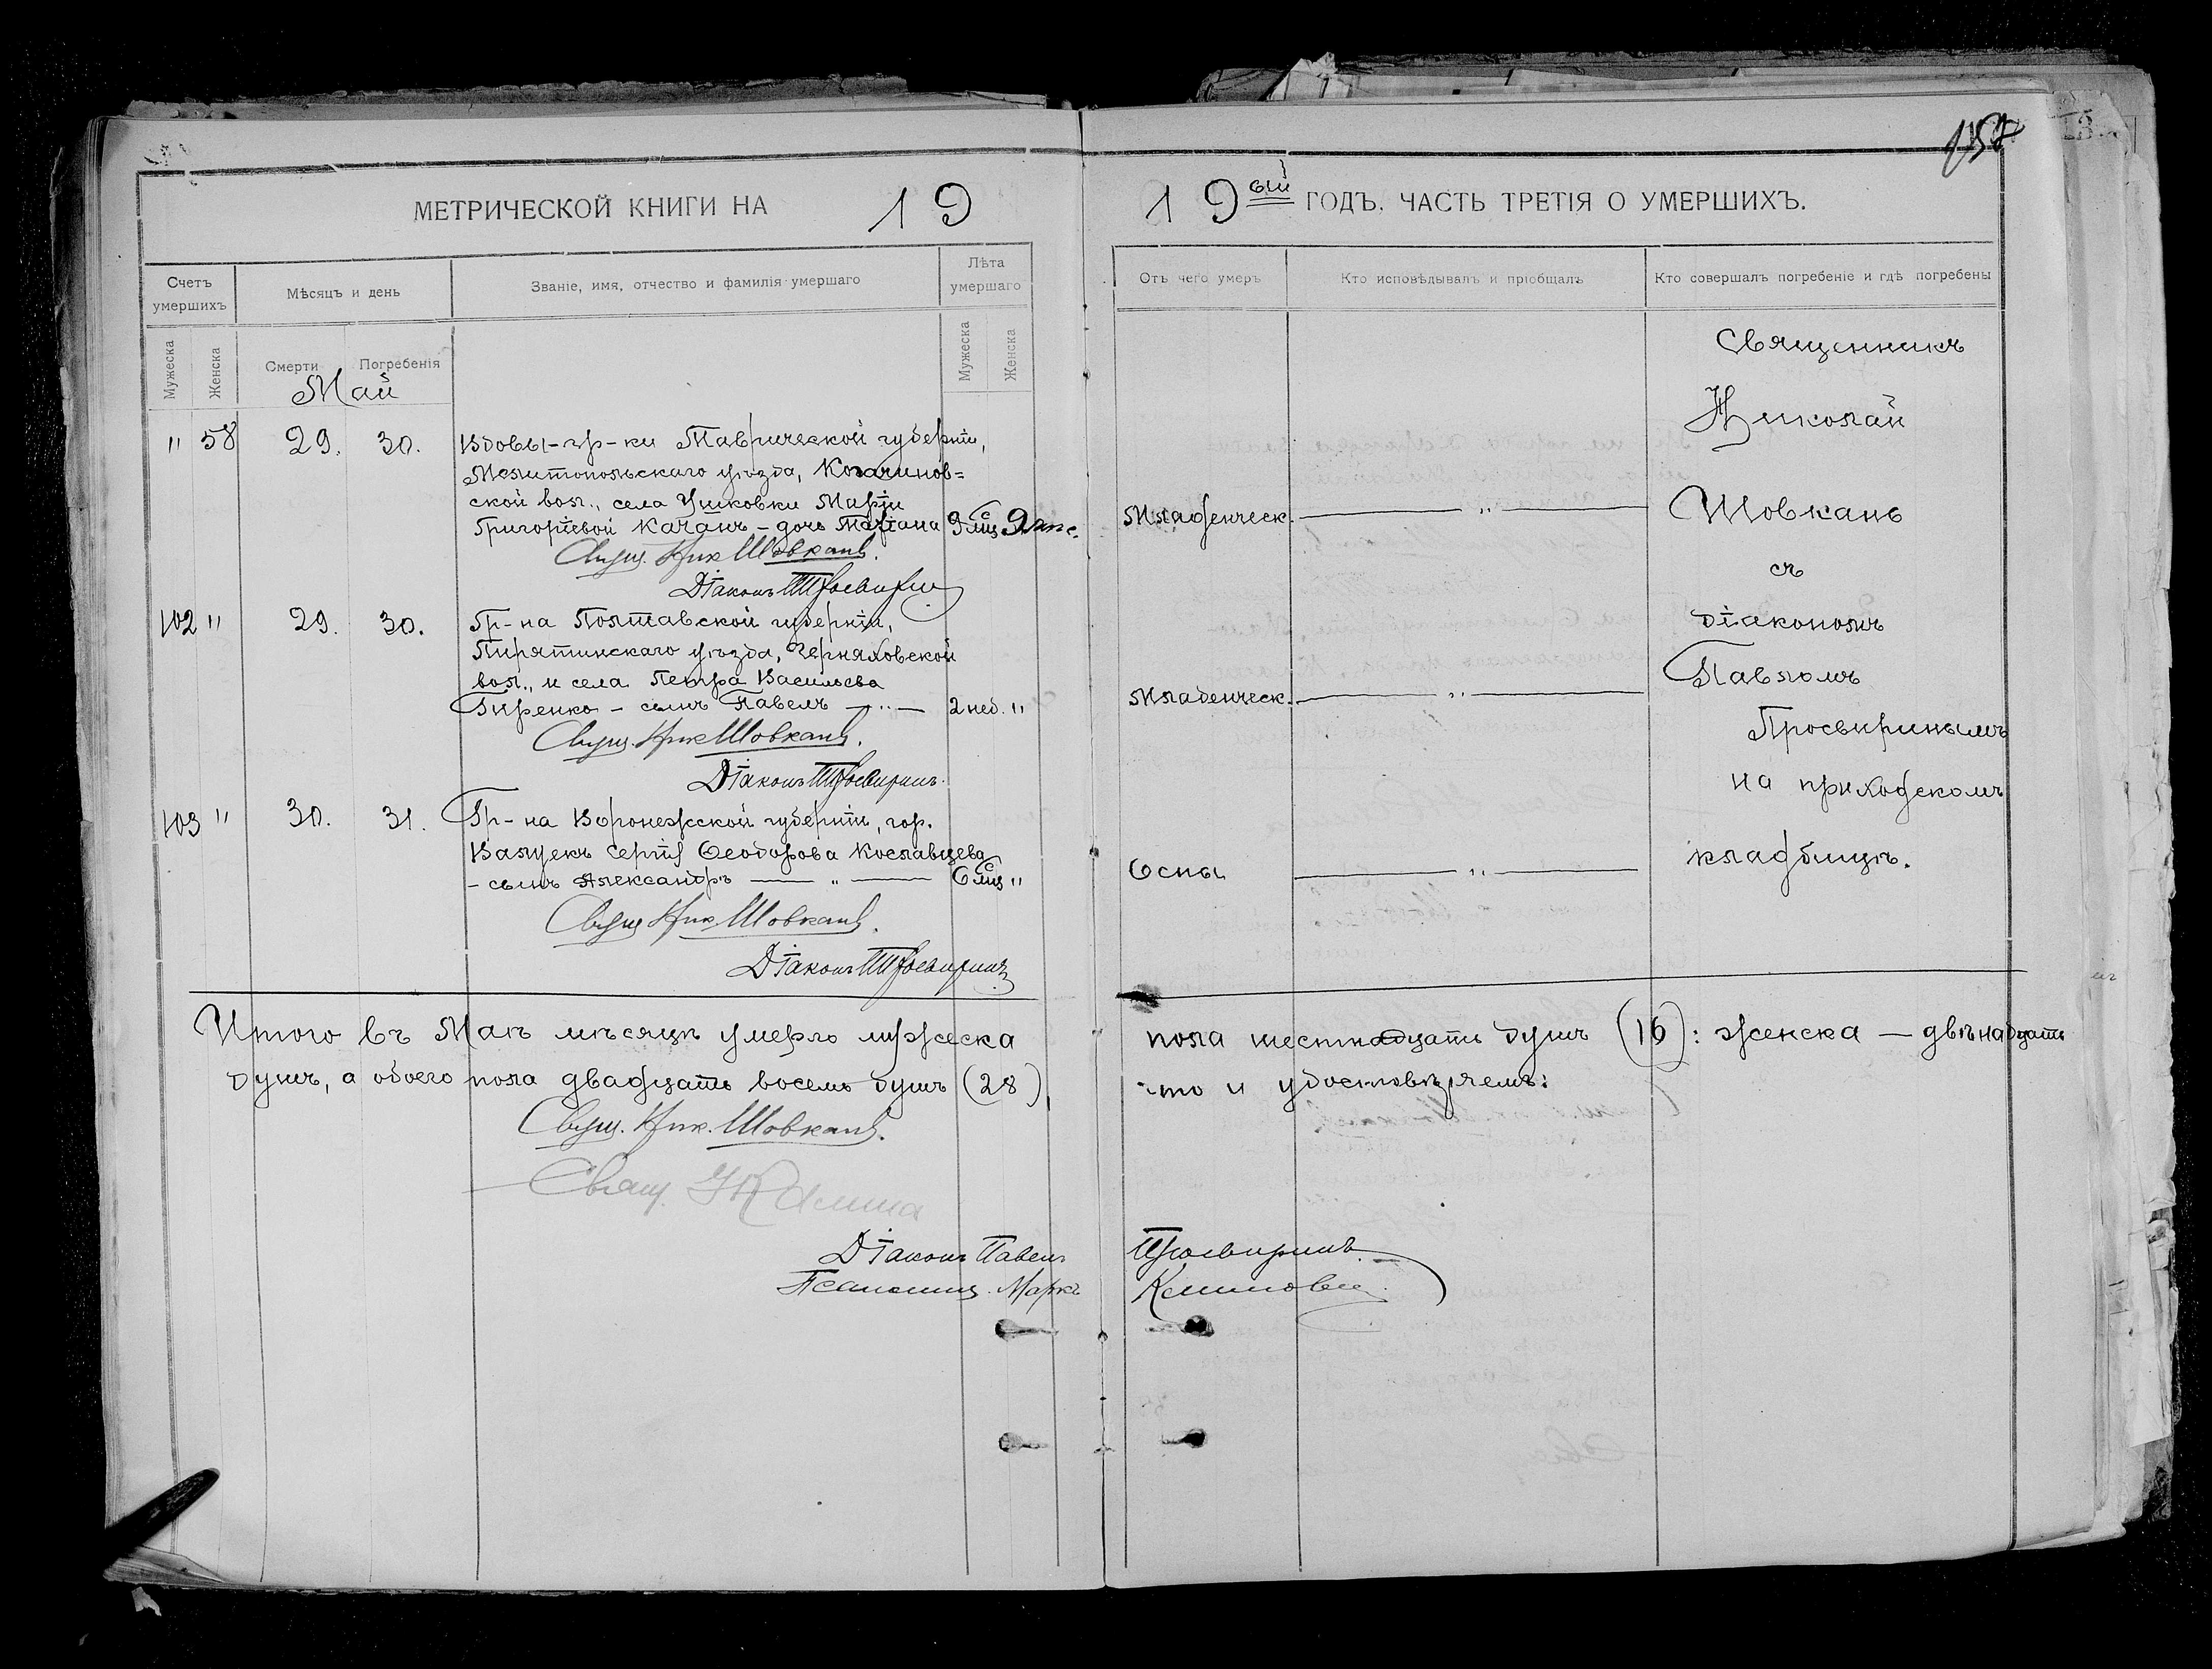 157
МЕТРИЧЕСКОЙ КНИГИ НА 19
19ый ГОДЪ. ЧАСТЬ ТРЕТІЯ О УМЕРШИХЪ.
Счетъ умершихъ
Мѣсяцъ и день
Званіе, имя, отчество и фамилія умершаго
Лѣта умершаго
Мужеска
Женска
Смерти
Погребенія
Мужеска
Женска
Май
" 58 29. 30. Вдовы-гр-ки Таврической губерніи,
Мелитопольскаго уѣзда,
ской вол., села Маріи
Григоріевой Качанъ - дочь Татіана 9 мѣс
Свящ. Ник Шовкань.
Діаконъ Просвирин
102 " 29. 30. Гр-на Полтавской губерніи,
Пирятинскаго уѣзда, Черняховской
вол., и села Петра Васильева
Гиренко - сынъ Павелъ — " — 2 нед. "
Свящ. Ник Шовкань.
Діаконъ Просвиринъ.
103 " 30. 31. Гр-на Воронежской губерніи, гор.
Валуекъ Сергія Ѳеодорова Кославцева
- сынъ Александръ — " — 6 мѣс "
Свящ Ник Шовкань.
Діаконъ Просвиринъ
Итого въ Маѣ мѣсяцѣ умерло мужеска
душъ, а обоего пола двадцать восемь душъ (28),
Свящ. Ник. Шовкань.
Свящ.
Діаконъ Павелъ
Псаломщ. Маркъ
Отъ чего умеръ
Кто исповѣдывалъ и пріобщалъ
Кто совершалъ погребеніе и гдѣ погребены
Младенческ. — " —
Младенческ. — " —
Оспы — " —
Священникъ
Николай
Шовкань
съ
діакономъ
Павломъ
Просвиринымъ
на приходскомъ
кладбищѣ.
пола шестнадцать душъ (16): женска — двѣнадцать
что и удостовѣряемъ:
Просвиринъ.